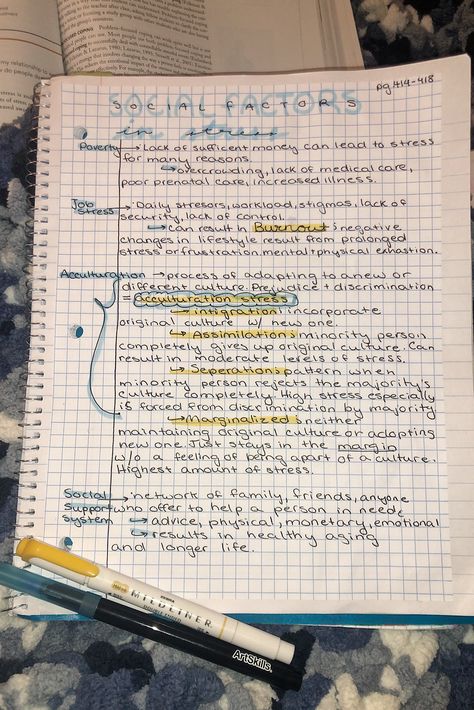 pg 414-418
SOCIAL FACTORS
in stress
Poverty → Lack of sufficent money can lead to stress
for many reasons.
↳ overcrowding, lack of medical care,
poor prenatal care, increased illness.
Job Stress → Daily stresors, workload, stigmas, lack of
security, lack of control.
↳ can result in Burnout: negative
changes in lifestyle result from prolonged
stress or frustration. mental + physical exhastion.
Acculturation → process of adapting to a new or
different culture. Prejudice + discrimination
= acculturation stress
→ intigration: incorporate
original culture w/ new one.
→ Assimilation: minority person
completely gives up original culture. Can
result in moderate levels of stress.
↳ Seperation: pattern when
minority person rejects the majority's
culture completely. High stress especially
if forced from discrimination by majority
↳ Marginalized: neither
maintaining original culture or adopting
new one. Just stays in the margin
w/o a feeling of being apart of a culture.
Highest amount of stress.
Social Support System → network of family, friends, anyone
who offer to help a person in need
↳ advice, physical, monetary, emotional
↳ results in healthy aging
and longer life.
ZEBRA
MILDLINER
DOUBLE ENDED
ArtSkills